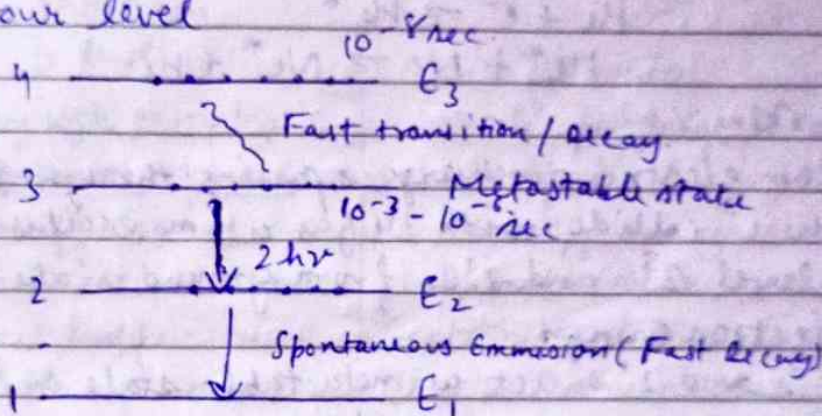 our level
10^-8 sec
4 E3
Fast transition / decay
3 Metastable state
10^-3 - 10^-6 sec
2hν
2 E2
Spontaneous Emmision (Fast decay)
1 E1